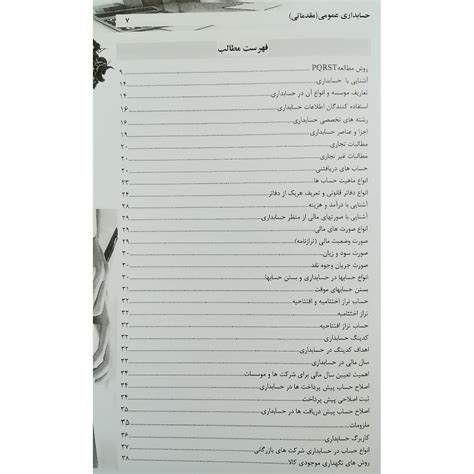 حسابداری عمومی(مقدماتی)
۷
فهرست مطالب
روش مطالعه PQRST ۹
آشنایی با حسابداری ۱۴
تعاریف موسسه و انواع آن در حسابداری ۱۴
استفاده کنندگان اطلاعات حسابداری ۱۶
رشته های تخصصی حسابداری ۱۶
اجزا و عناصر حسابداری ۱۹
مطالبات تجاری ۲۰
مطالبات غیر تجاری ۲۰
حساب های دریافتنی ۲۰
انواع ماهیت حساب ها ۲۳
انواع دفاتر قانونی و تعریف هریک از دفاتر ۲۴
آشنایی با درآمد و هزینه ۲۸
آشنایی با صورتهای مالی از منظر حسابداری ۲۹
انواع صورت های مالی ۲۹
صورت وضعیت مالی (ترازنامه) ۲۹
صورت سود و زیان ۳۰
صورت جریان وجوه نقد ۳۰
انواع حسابها در حسابداری و بستن حسابها ۳۰
بستن حسابهای موقت ۳۱
حساب تراز اختتامیه و افتتاحیه ۳۲
تراز اختتامیه ۳۲
حساب تراز افتتاحیه ۳۲
کدینگ حسابداری ۳۲
اهداف کدینگ در حسابداری ۳۳
سال مالی در حسابداری ۳۳
اهمیت تعیین سال مالی برای شرکت ها و موسسات ۳۴
اصلاح حساب پیش پرداخت ها در حسابداری ۳۴
ثبت اصلاحی پیش پرداخت ۳۴
اصلاح حساب پیش دریافت ها در حسابداری ۳۵
ملزومات ۳۵
کاربرگ حسابداری ۳۶
انواع حساب در حسابداری شرکت های بازرگانی ۳۷
روش های نگهداری موجودی کالا ۳۸